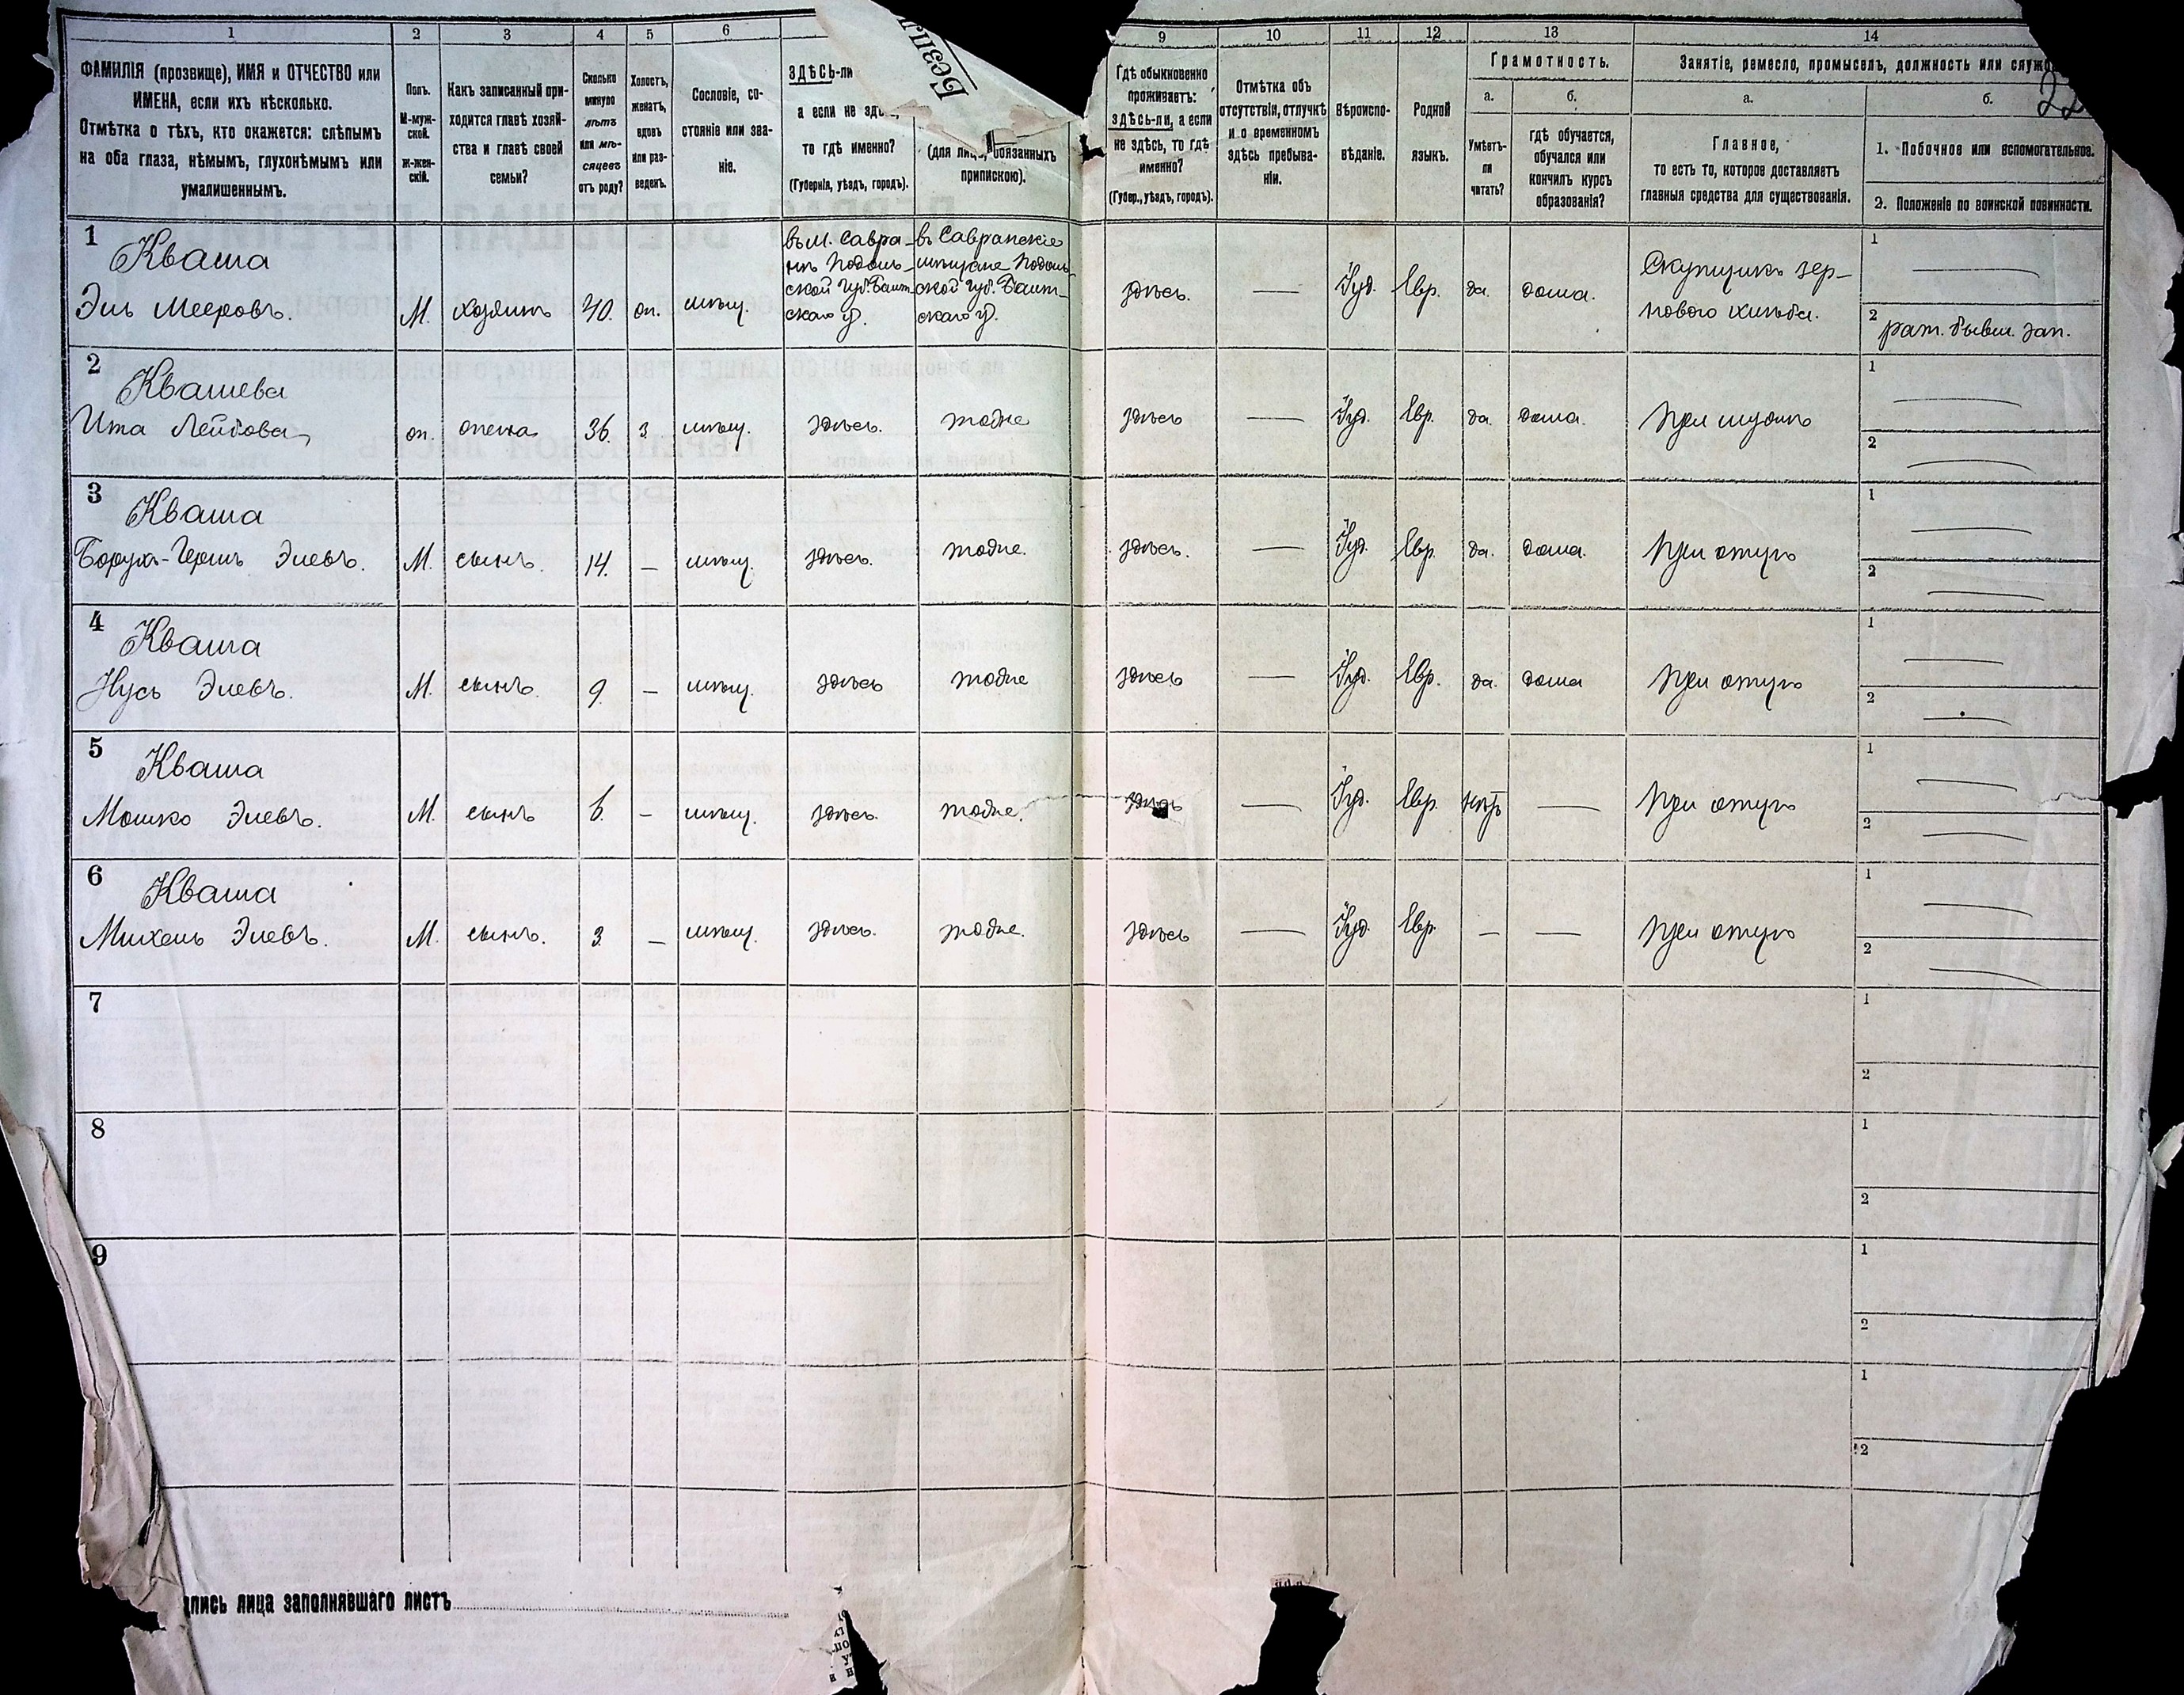 1 2 3 4 5 6 9 10 11 12 13 14
ФАМИЛІЯ (прозвище), ИМЯ и ОТЧЕСТВО или
ИМЕНА, если ихъ нѣсколько.
Отмѣтка о тѣхъ, кто окажется: слѣпымъ
на оба глаза, нѣмымъ, глухонѣмымъ или
умалишеннымъ.
Полъ.
М-муж-
ской.
Ж-жен-
скій.
Какъ записанный при-
ходится главѣ хозяй-
ства и главѣ своей
семьи?
Сколько
минуло
лѣтъ
или мѣ-
сяцевъ
отъ роду?
Холостъ,
женатъ,
вдовъ
или раз-
веденъ.
Сословіе, со-
стояніе или зва-
ніе.
ЗДѢСЬ-ли
а если не здѣ
то гдѣ именно?
(Губернія, уѣздъ, городъ).
Безпл
(для лицъ, обязанныхъ
припискою).
Гдѣ обыкновенно
проживаетъ:
здѣсь-ли, а если
не здѣсь, то гдѣ
именно?
(Губер., уѣздъ, городъ).
Отмѣтка объ
отсутствіи, отлучкѣ
и о временномъ
здѣсь пребыва-
ніи.
Вѣроиспо-
вѣданіе.
Родной
языкъ.
Грамотность.
а.
Умѣетъ-
ли
читать?
б.
гдѣ обучается,
обучался или
кончилъ курсъ
образованія?
Занятіе, ремесло, промыселъ, должность или служ
22
а.
Главное,
то есть то, которое доставляетъ
главныя средства для существованія.
б.
1. Побочное или вспомогательное.
2. Положеніе по воинской повинности.
1
Кваша
Эль Мееровъ. М. хозяинъ 40. он. мѣщ.
въ м. Савра-
нь Подоль-
ской губ. Балт-
скаго у.
въ Савранскіе
мѣщане Подоль-
ской губ. Балт-
скаго у.
здѣсь. — Іуд. Евр. да. дома.
Скупщикъ зер-
нового хлѣба.
1 —
2 рат. бывш. зап.
2
Квашева
Ита Лейбова он. опека 36. з. мѣщ. здѣсь. тоже здѣсь — Іуд. Евр. да. дома. при мужѣ
1 —
2 —
3
Кваша
Борухъ-Гершъ Элевъ. М. сынъ. 14. — мѣщ. здѣсь. тоже. здѣсь. — Іуд. Евр. да. дома. при отцѣ
1 —
2 —
4
Кваша
Нусь Элевъ. М. сынъ. 9. — мѣщ. здѣсь тоже здѣсь — Іуд. Евр. да. дома при отцѣ
1 —
2 —
5
Кваша
Мошко Элевъ. М. сынъ 6. — мѣщ. здѣсь. тоже. здѣсь — Іуд. Евр. нѣтъ — при отцѣ
1 —
2 —
6
Кваша
Михель Элевъ. М. сынъ. 3. — мѣщ. здѣсь. тоже. здѣсь — Іуд. Евр. — — при отцѣ
1 —
2 —
7
1
2
8
1
2
9
1
2
1
2
пись лица заполнявшаго листъ